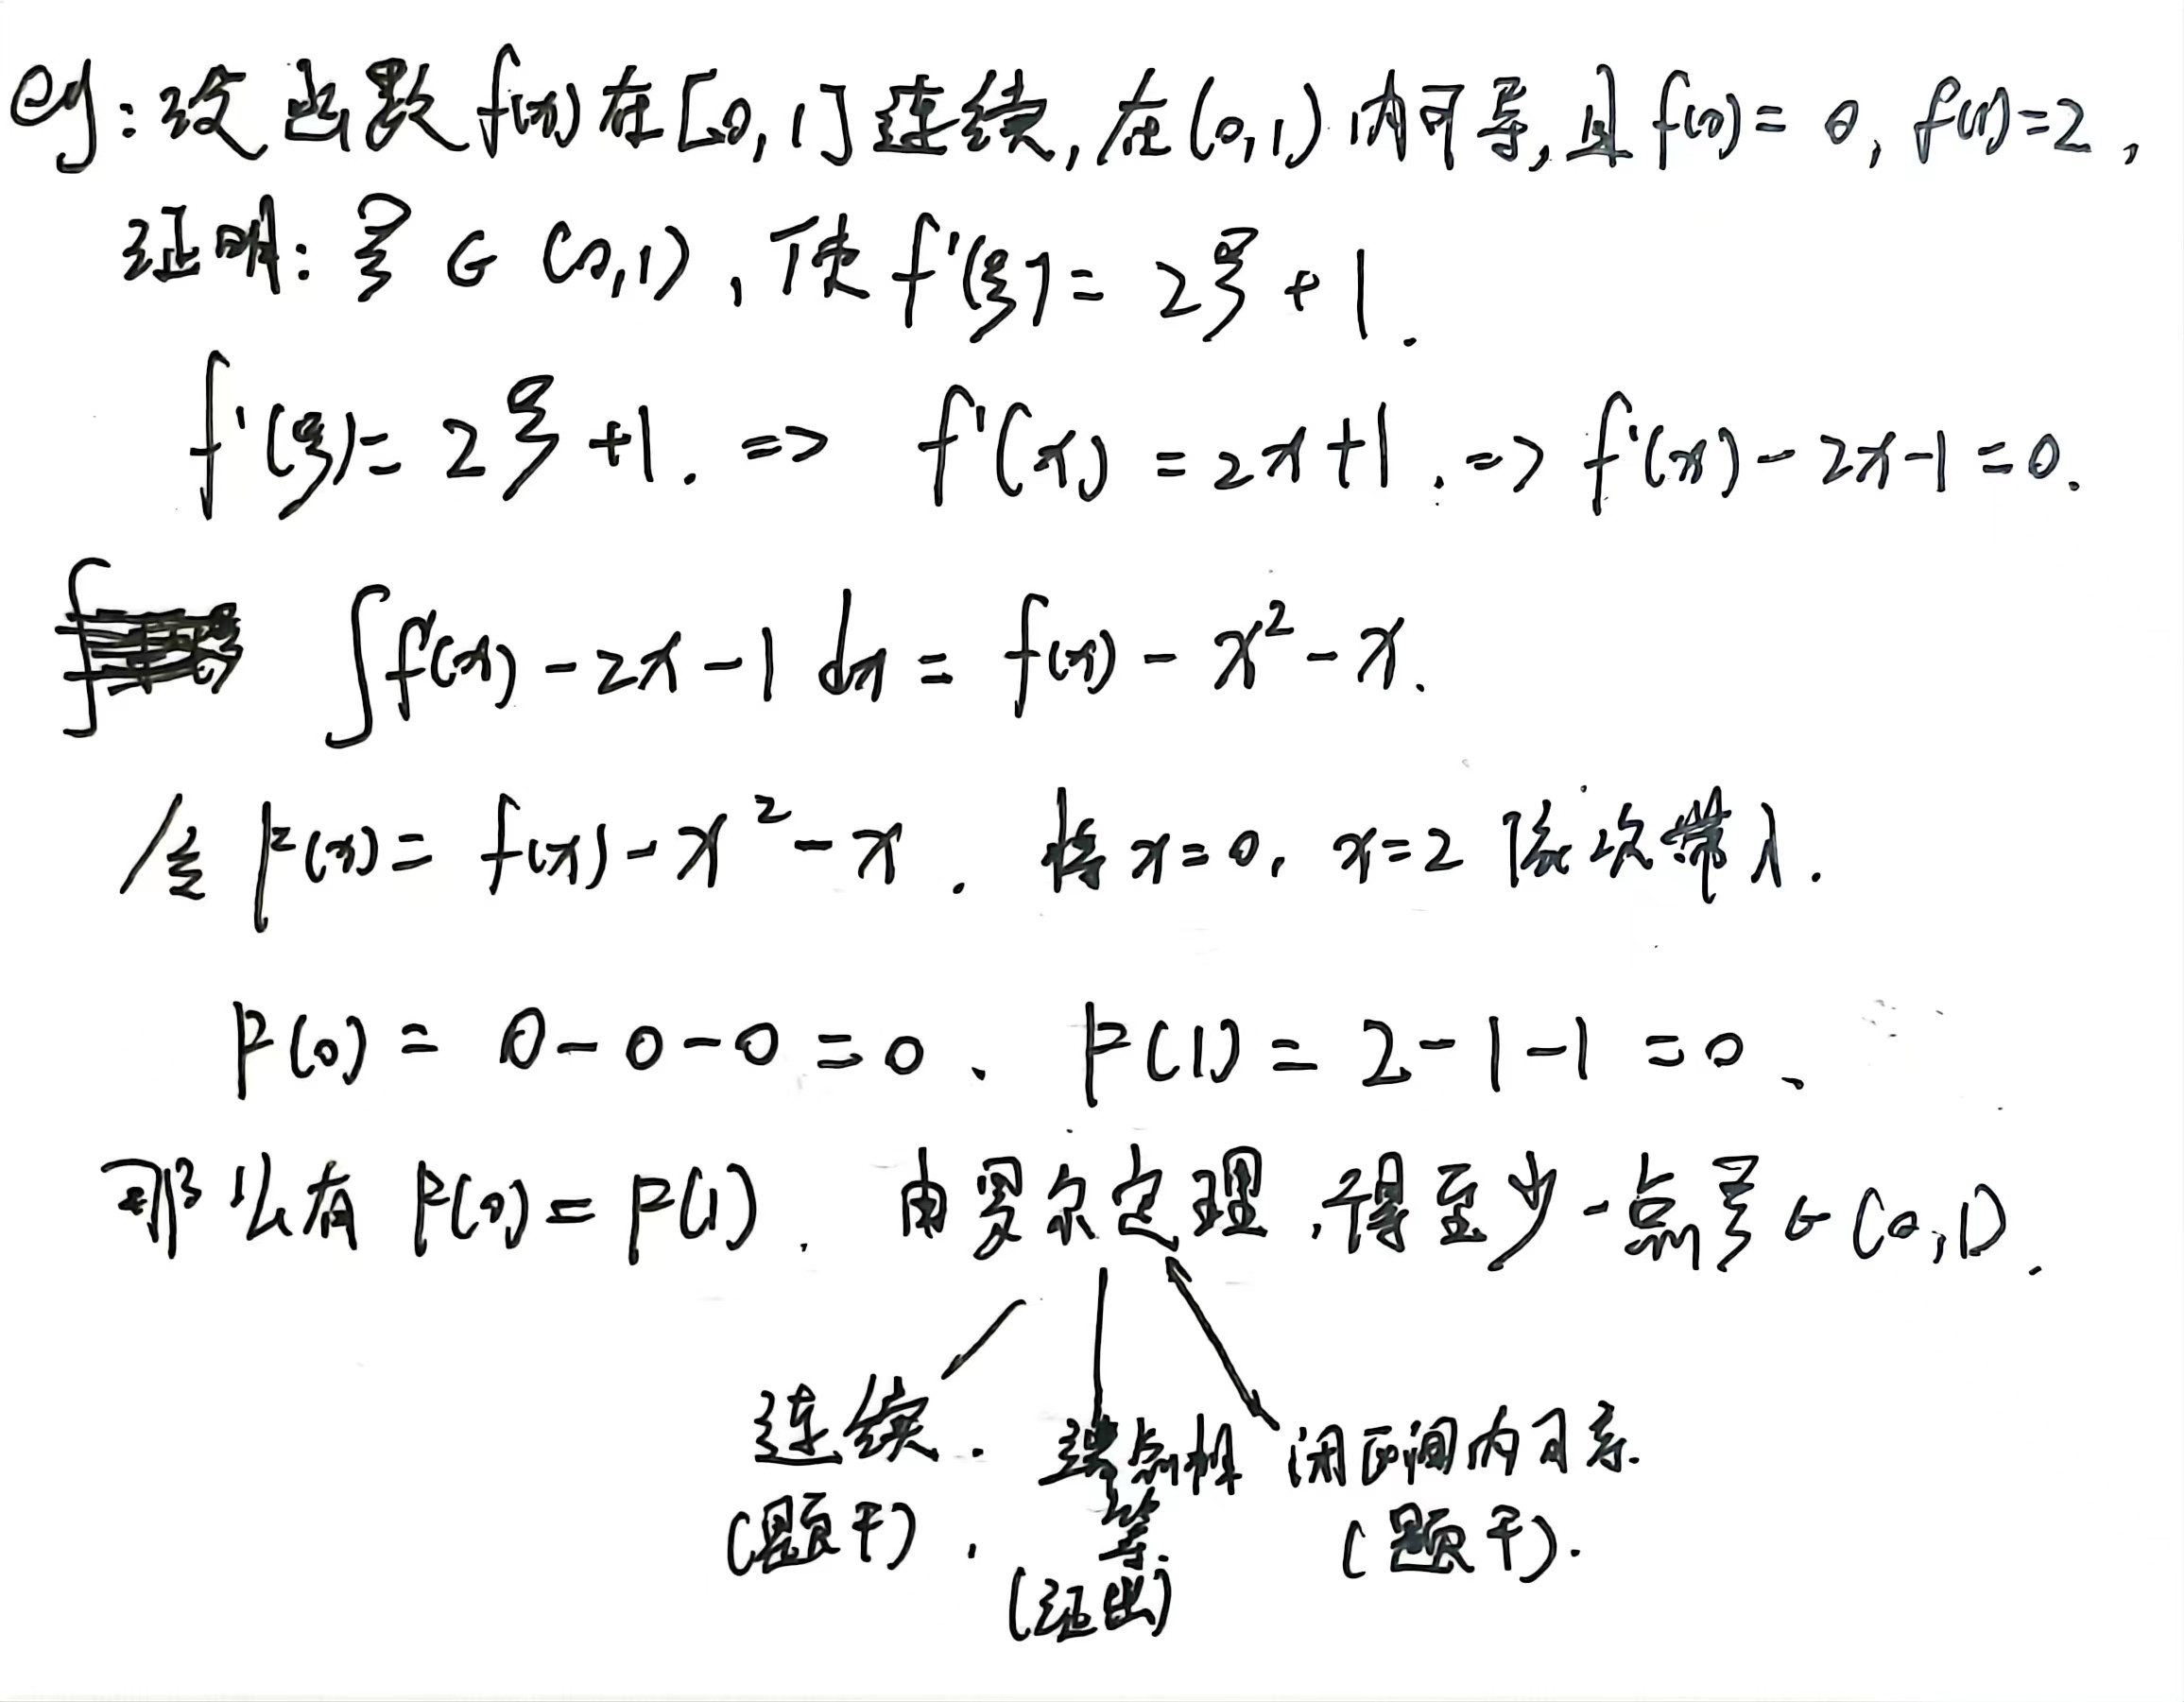 eg:设函数f(x)在[0,1]连续,在(0,1)内可导,且f(0)=0,f(1)=2,
证明:ξ∈(0,1),使f'(ξ)=2ξ+1.
f'(ξ)=2ξ+1. => f'(x)=2x+1. => f'(x)-2x-1=0.
∫f'(x)-2x-1 dx = f(x)-x²-x.
令F(x)=f(x)-x²-x. 将x=0, x=2依次带入.
F(0)=0-0-0=0、F(1)=2-1-1=0、
那么有F(0)=F(1). 由罗尔定理,得至少一点ξ∈(0,1).
连续. 端点相等 闭区间内可导.
(题干). (证出) (题干).